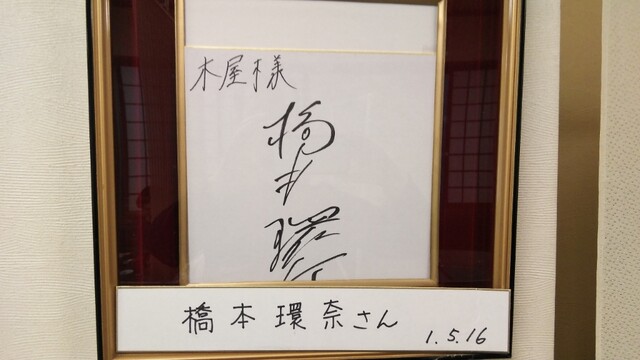 木屋様
橋本環奈
橋本環奈さん
1.5.16